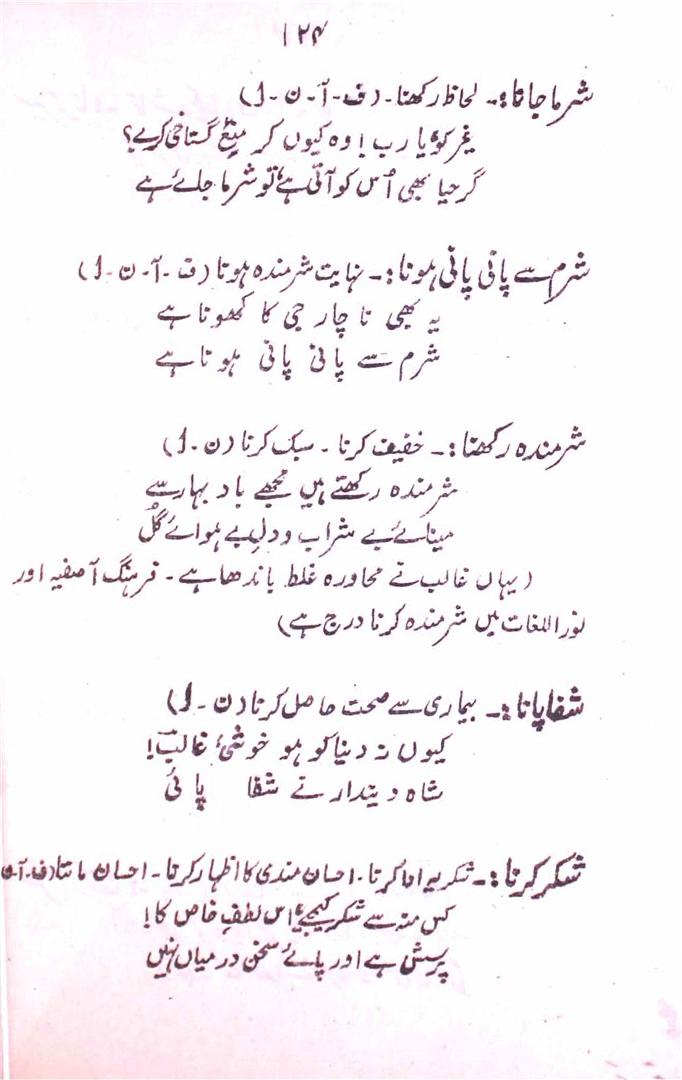 ۱۲۴
شرما جانا:۔ لحاظ رکھنا۔ (ف۔ آ۔ ن۔ ل)
غیر کو یا رب! وہ کیوں کر منعِ گستاخی کرے؟
گر حیا بھی اُس کو آتی ہے تو شرما جائے ہے
شرم سے پانی پانی ہونا:۔ نہایت شرمندہ ہونا (ف۔ آ۔ ن۔ ل)
یہ بھی ناچار جی کا کھونا ہے
شرم سے پانی پانی ہونا ہے
شرمندہ رکھنا:۔ خفیف کرنا۔ سبک کرنا (ن۔ ل)
شرمندہ رکھتے ہیں مجھے بادِ بہار سے
مینائے بے شراب و دلِ بے ہوائے گُل
(یہاں غالب نے محاورہ غلط باندھا ہے۔ فرہنگ آصفیہ اور
نور اللغات میں شرمندہ کرنا درج ہے)
شفا پانا:۔ بیماری سے صحت حاصل کرنا (ن۔ ل)
کیوں نہ دنیا کو ہو خوشی غالبؔ!
شاہ دیندار نے شفا پائی
شکر کرنا:۔ شکریہ ادا کرنا۔ احسان مندی کا اظہار کرنا۔ احسان ماننا (ف۔ آ۔ ن
کس منہ سے شکر کیجیے اس لطفِ خاص کا!
پرسش ہے اور پائے سخن درمیاں نہیں